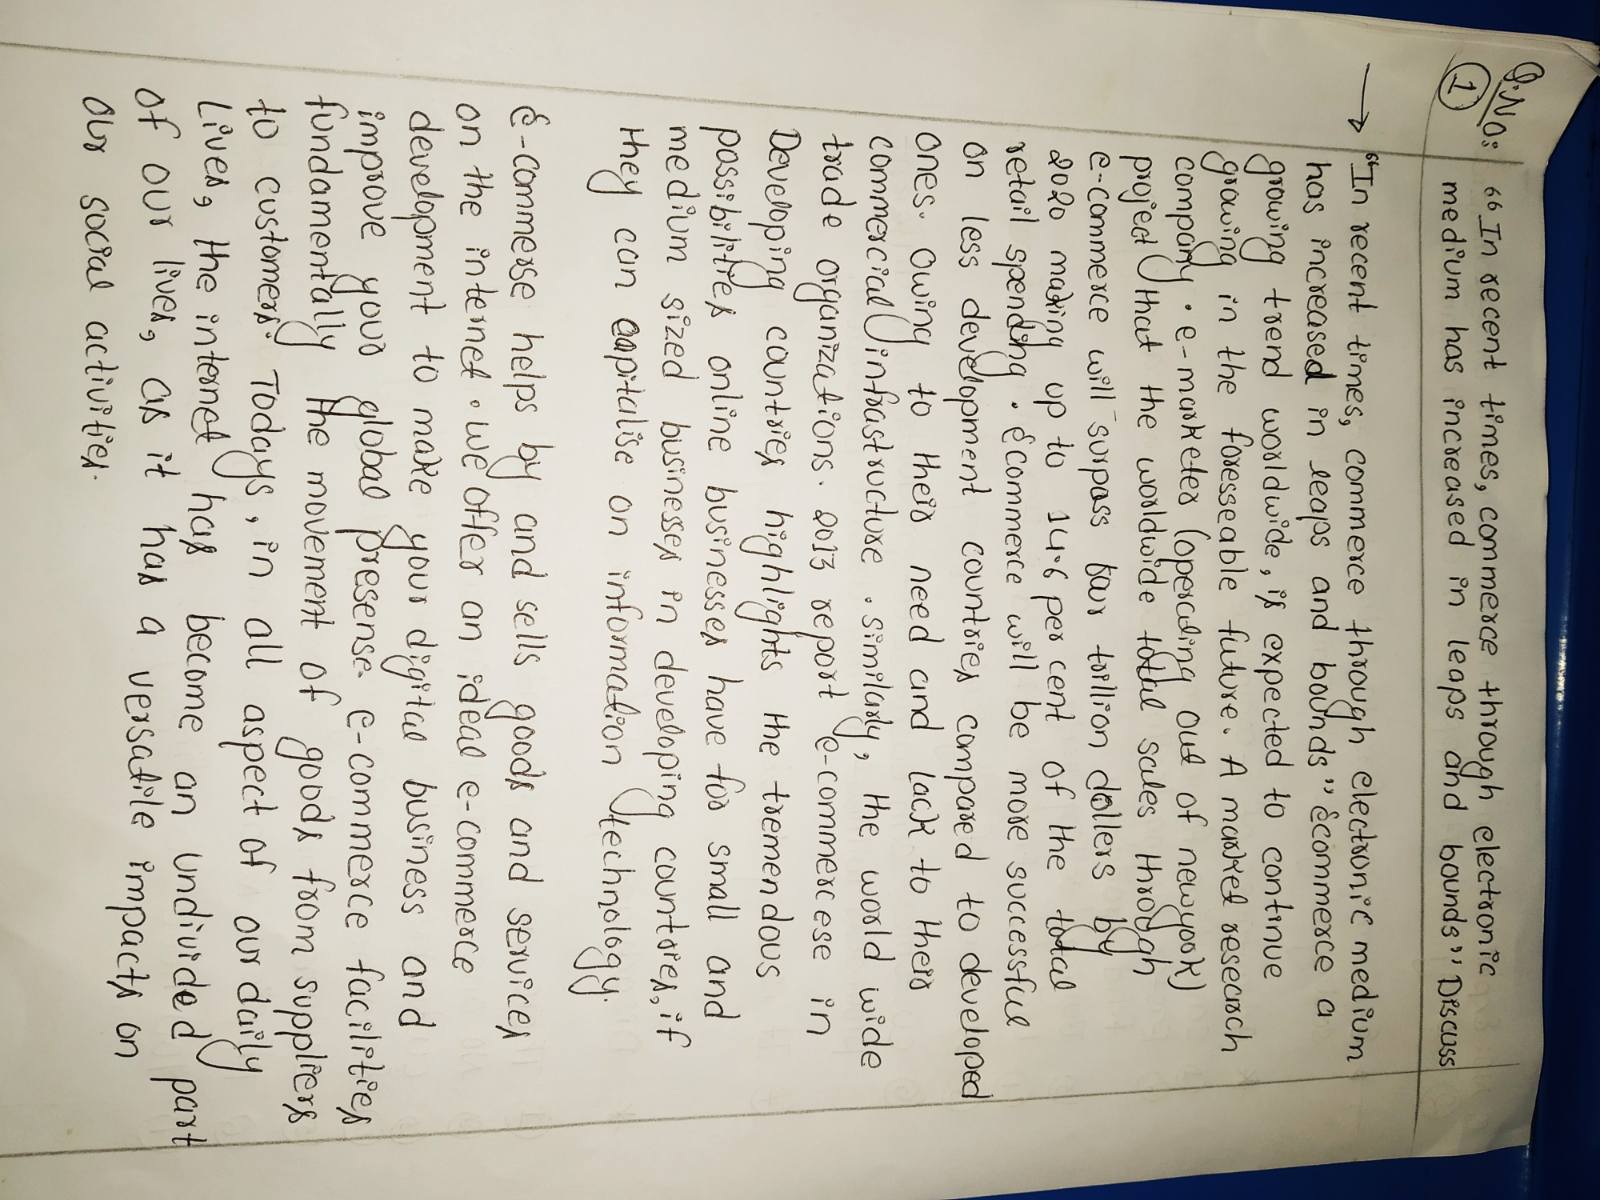 Q.NO:
1
"In recent times, commerce through electronic
medium has increased in leaps and bounds" Discuss
→ "In recent times, commerce through electronic medium
has increased in leaps and bounds" Ecommerce a
growing trend worldwide, is expected to continue
growing in the foresseable future. A market research
company. e-marketer (operating out of newyook)
project that the worldwide total sales through
e-commerce will surpass four trillion dollers by
2020 making up to 14.6 per cent of the total
retail spending. Ecommerce will be more successful
on less development countries compared to developed
ones. Owing to their need and lack to their
commercial infrastructure. Similarly, the world wide
trade organizations. 2013 report e-commercese in
Developing countries highlights the tremendous
possibilities online businesses have for small and
medium sized businesses in developing countores, if
they can capitalise on information technology.
E-commerse helps by and sells goods and services
on the internet. We offer an ideal e-commerce
development to make your digital business and
improve your global presense. e-commerce facilities
fundamentally the movement of goods from suppliers
to customers. Todays, in all aspect of our daily
Lives, the internet has become an undivided part
of our lives, as it has a versatile impacts on
our social activities.